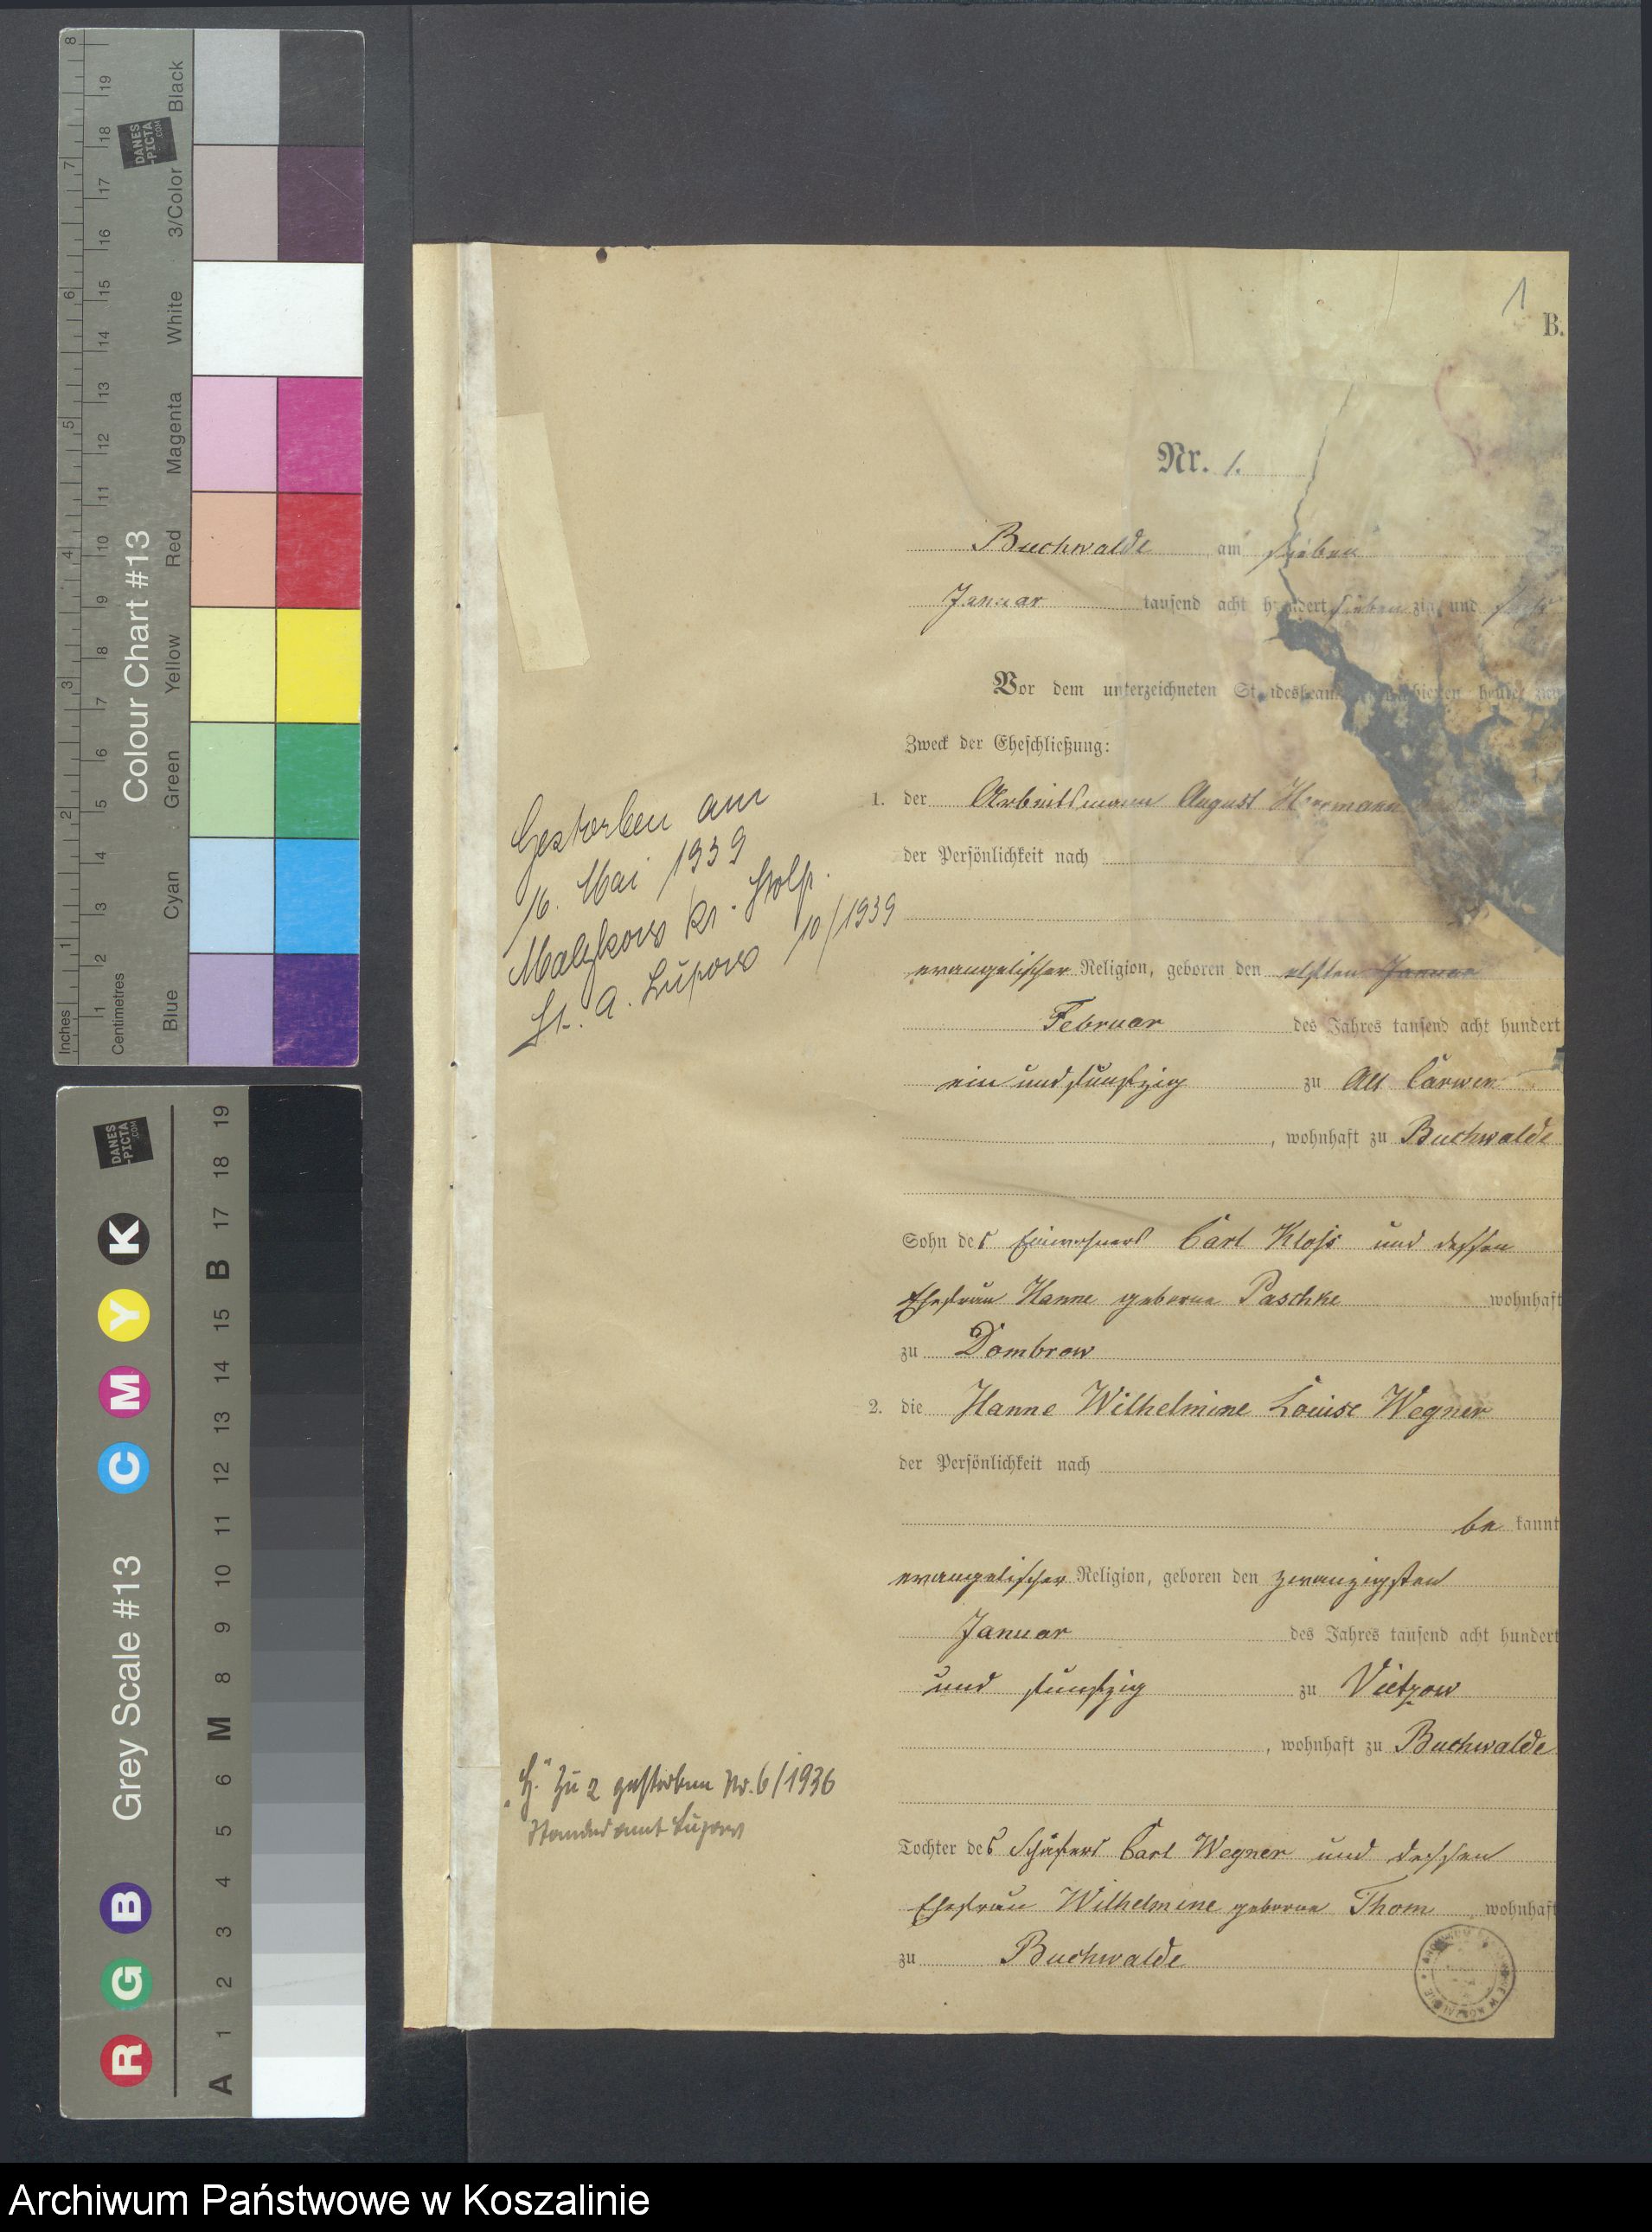 8
7
6
5
4
3
2
1
Inches
19
18
17
16
15
14
13
12
11
10
9
8
7
6
5
4
3
2
1
Centimetres
DANES
-PICTA
.COM
Colour Chart #13
Black
3/Color
White
Magenta
Red
Yellow
Green
Cyan
Blue
DANES
-PICTA
.COM
Grey Scale #13
K
Y
M
C
B
G
R
19
18
17
B
15
14
13
12
11
10
9
8
M
6
5
4
3
2
1
A
1
B.
Nr. 1.
Buchwalde am sieben
Januar tausend acht hundert sieben zig und
Vor dem unterzeichneten
Zweck der Eheschließung:
1. der Arbeitsmann August Hermann
der Persönlichkeit nach
evangelischer Religion, geboren den elften Januar
Februar des Jahres tausend acht hundert
ein und fünfzig zu Alt Carwen
, wohnhaft zu Buchwalde
Sohn des Einwohners Carl Kloss und dessen
Ehefrau Hanne geborne Paschke wohnhaft
zu Dombrow
2. die Hanne Wilhelmine Louise Wegner
der Persönlichkeit nach
be kannt
evangelischer Religion, geboren den zwanzigsten
Januar des Jahres tausend acht hundert
und fünfzig zu Vietzow
, wohnhaft zu Buchwalde
Tochter des Schäfers Carl Wegner und dessen
Ehefrau Wilhelmine geborne Thom wohnhaft
zu Buchwalde
Gestorben am
16. Mai 1939
Malzkow Kr. Stolp.
St. A. Lupow 10/1939
"H." Zu 2 gestorben Nr. 6/1936
Standesamt Lupow
Archiwum Państwowe w Koszalinie